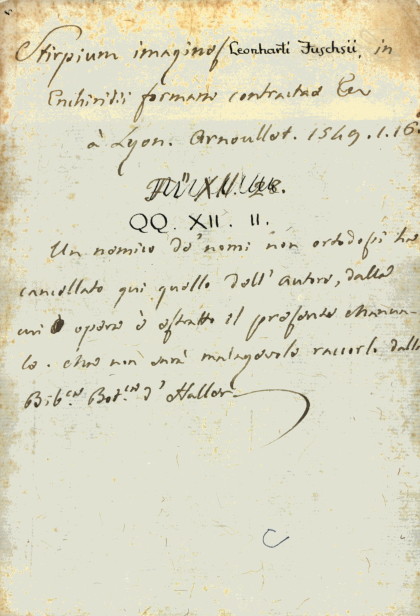 Stirpium imagines Leonharti Fuchsii, in
Enchiridii formam contractae
à Lyon. Arnoullet. 1549. 1. 16.
QQ. XII. II.
Un nemico de' nomi non ortodossi ha
cancellato qui quello dell' Autore, dalla
cui opera è estratto il presente Manua-
le. che non sarà malagevole raccorlo dalla
Bib.ca Bot.ca d' Haller